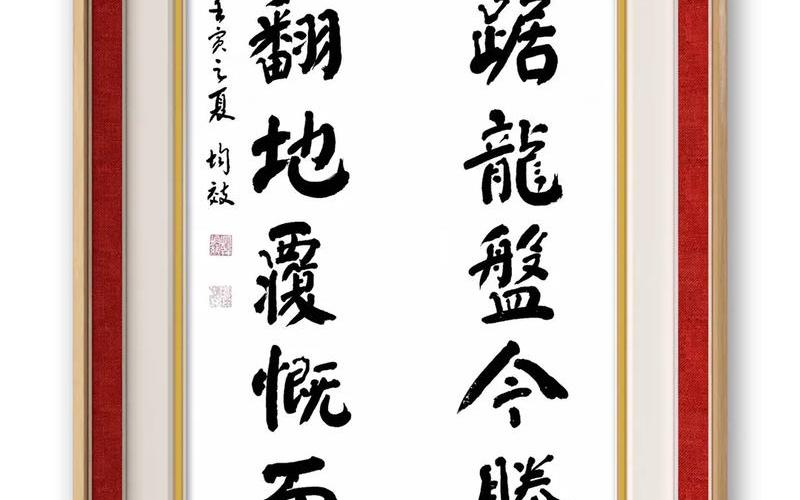 踞龍盤今勝
翻地覆慨而
壬寅之夏 均